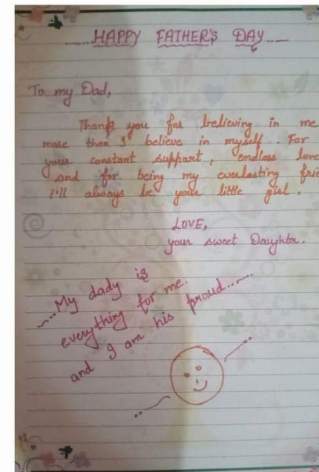 HAPPY FATHER'S DAY....
To my Dad,
Thank you for believing in me
more than I believe in myself. For
your constant support, endless love
and for being my everlasting frie
I'll always be your little girl.
LOVE,
your sweet Daughter.
~...My dady is
everything for me.
and I am his proud......